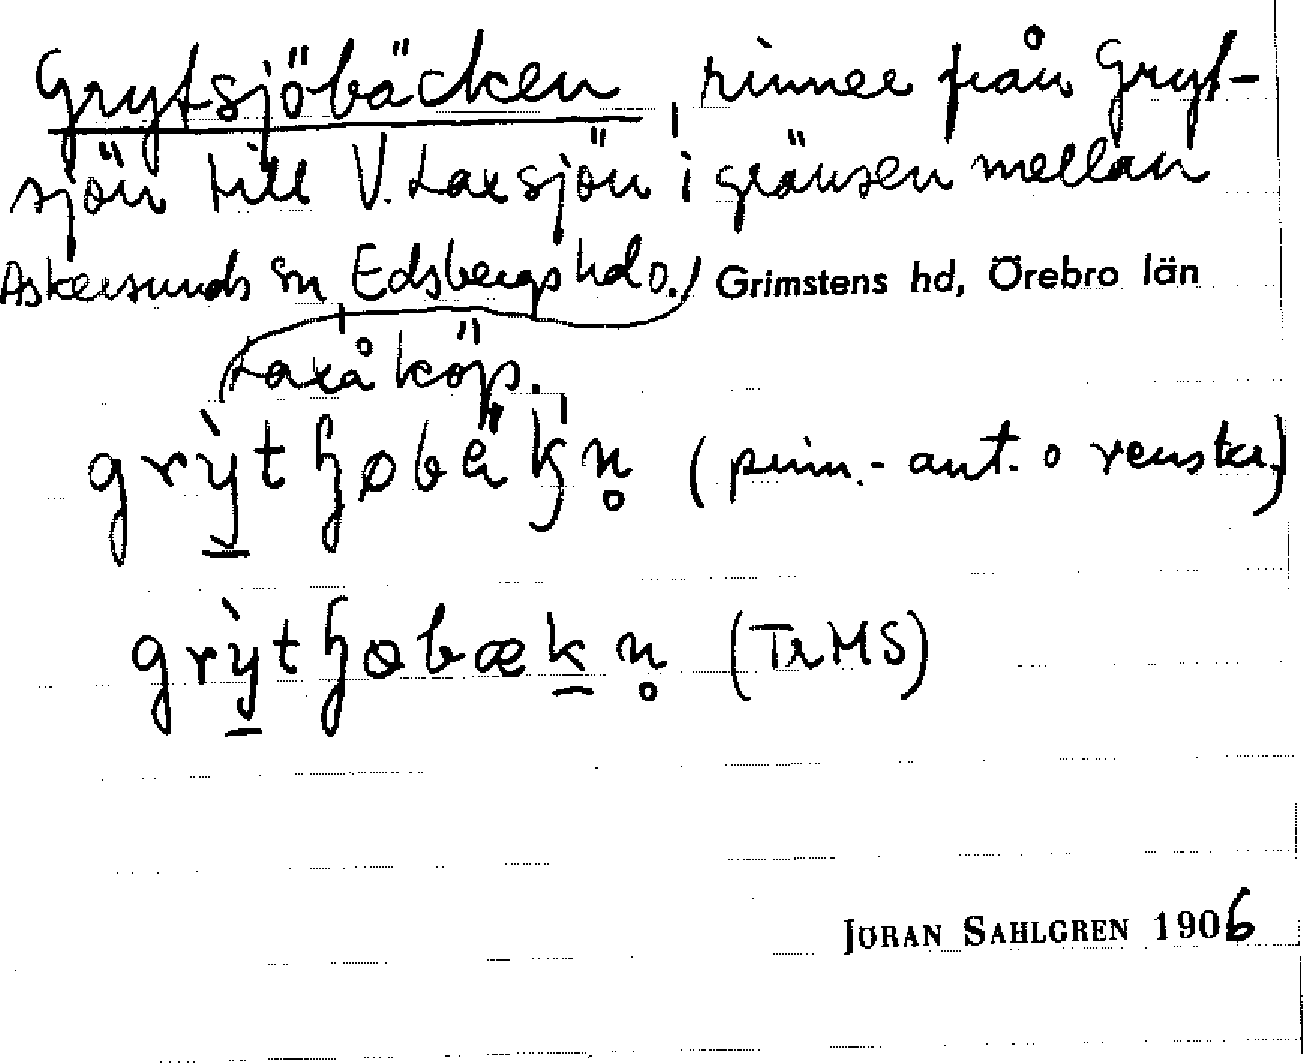 Grytsjöbäcken, rinner från Gryt-
sjön till V. Laxsjön i gränsen mellan
Askersunds sn Edsbergs hd o. Grimstens hd, Örebro län
Laxå köp.
(pinn.-ant. o renskr.)
(TrMS)
JÖRAN SAHLGREN 1906